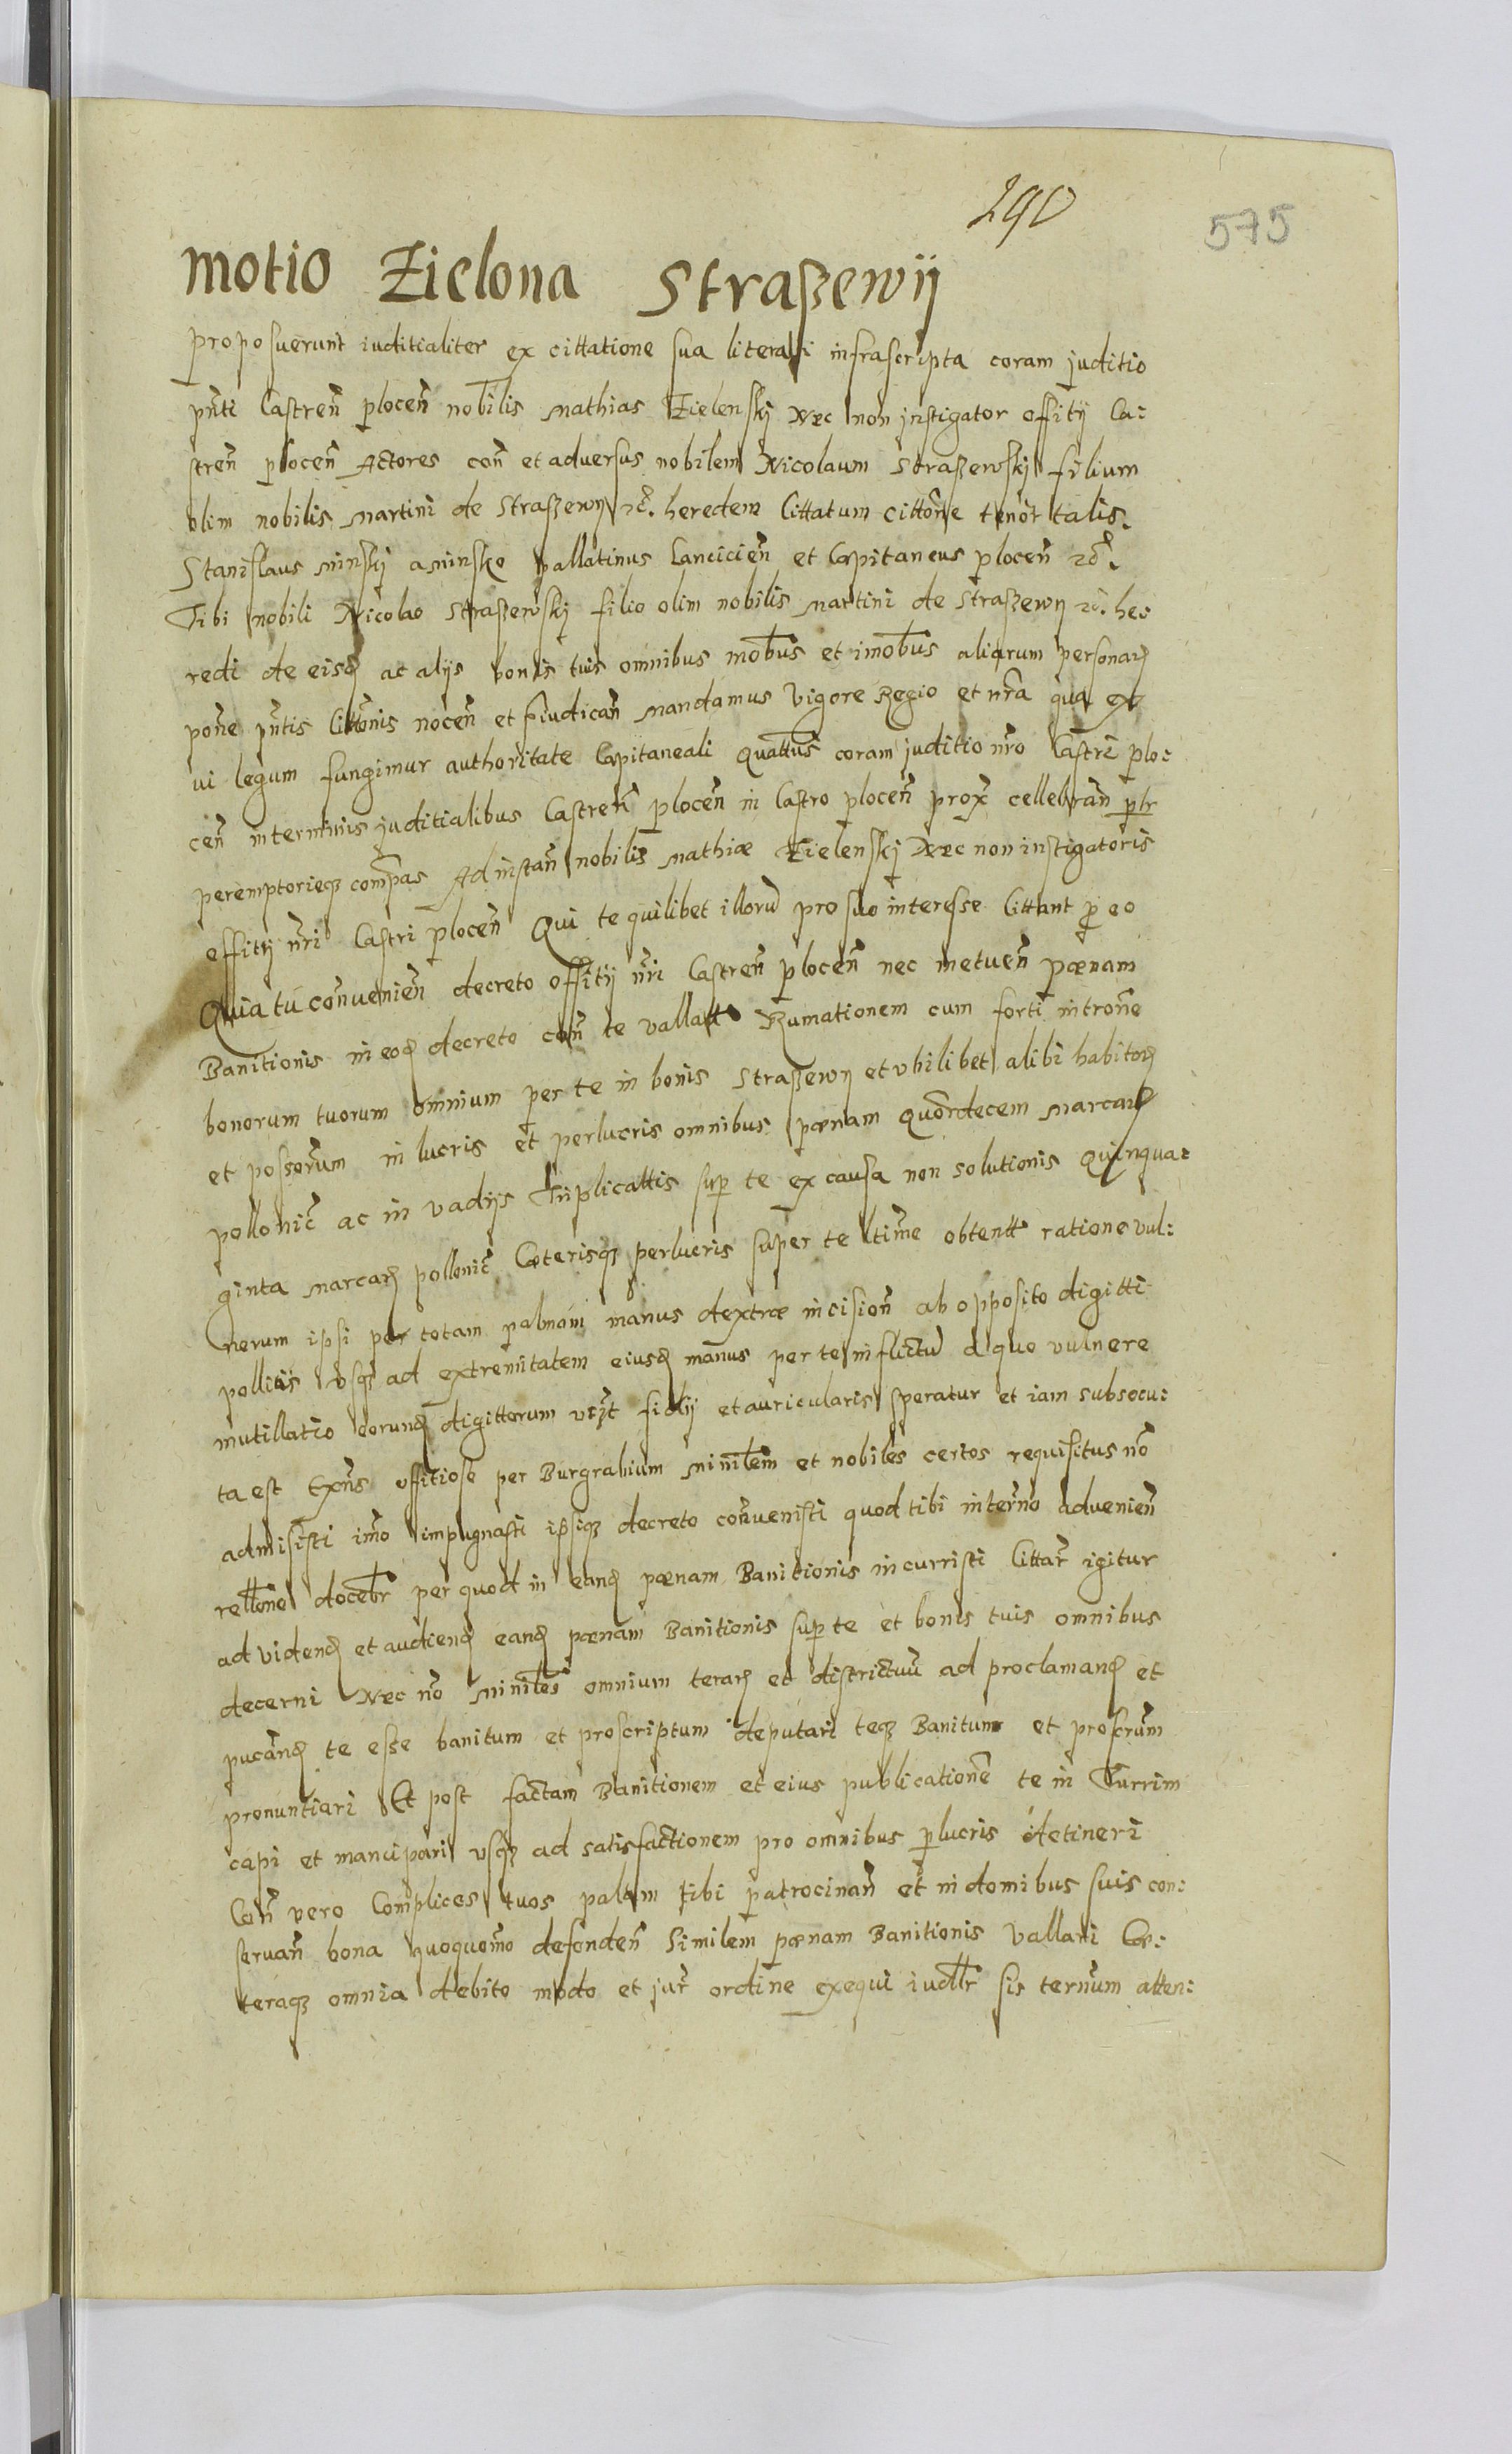 290
575
motio Zielona Straßewÿ
proposuerunt iuditialiter ex cittatione sua literali infrascripta coram juditio
pn̄ti Castren̄ plocen̄ nobilis Mathias Zielenskj Nec non instigator offitÿ Ca:
stren̄ plocen̄ Actores con̄ et adversus nobilem Nicolaum Straßewskj filium
olim nobilis Martini de Straßewÿ rc̄. heredem Cittatum cittōne tenor̄ talis.
Stanislaus Minskj a Minsko pallatinus Lancicien̄ et Capitaneus plocen̄ rc̄.
Tibi nobili Nicolao Straßewskj filio olim nobilis Martini de Straßewÿ rc̄. he:
redi de eisd. ac alÿs bonis tuis omnibus mōbus et imōbus aliarum personar.
pōne pn̄tis Cittōnis nocen̄ et piudican̄ Mandamus Vigore Regio et nr̄a qua ex
vi legum fungimur authoritate Capitaneali Quattūs coram juditio nr̄o Castri plo:
cen̄ in terminis juditialibus Castren̄ plocen̄ in Castro plocen̄ prox̄ cellebran̄ plr
peremptorieq3 compās Ad instan̄ nobilis Mathiæ Zielenskj Nec non instigatoris
offitÿ nr̄i Castri plocen̄ Qui te quilibet illorū pro suo interesse Cittant p eo
Quia tu con̄venien̄ decreto offitÿ nr̄i Castren̄ plocen̄ nec metuen̄ pœnam
Banitionis in eod. decreto con̄ te vallatt Rumationem cum forti intrōne
bonorum tuorum omnium per te in bonis Straßewÿ et ubilibet alibi habitor.
et possorūm in lucris et perlucris omnibus pœnam quōrdecem Marcar.
pollonic̄ ac in vadÿs Triplicattis sup te ex causa non solutionis Quinqua:
ginta Marcar. pollonic̄ Cæterisq3 perlucris super te ltīme obtentt ratione vul:
nerum ipsi per totam palmam manus dextræ incision̄ ab opposito digitti
pollicis usq3 ad extremitatem eiusd. manus per te inflictū a quo vulnere
mutillatio eorund. digittorum viz̄t fidÿ et auricularis speratur et iam subsecu:
ta est Exn̄s offitiose per Burgrabium Ministlem et nobiles certos requisitus nō
admisisti imō impugnasti ipsiq3 decreto con̄venisti quod tibi in ter̄no advenien̄
rellōne docebr̄ per quod in eand. pœnam Banitionis incurristi Cittar̄ igitur
ad vidend. et audiend. eand. pœnam Banitionis sup te et bonis tuis omnibus
decerni Nec nō Ministles omnium terar. et districtuū ad proclamand. et
pucānd. te esse banitum et proscriptum deputari teq3 Banitum et proscrūm
pronuntiari Et post factam Banitionem et eius publicationē te in Turrim
capi et mancipari usq3 ad satisfactionem pro omnibus plucris detineri
Con̄ vero Complices tuos palam tibi patrocinan̄ et in domibus suis con:
servan̄ bona quoquomō defenden̄ Similem pœnam Banitionis Vallari Cæ:
teraq3 omnia debito modo et jur̄ ordine exequi iudlr̄ sis ternūm atten: